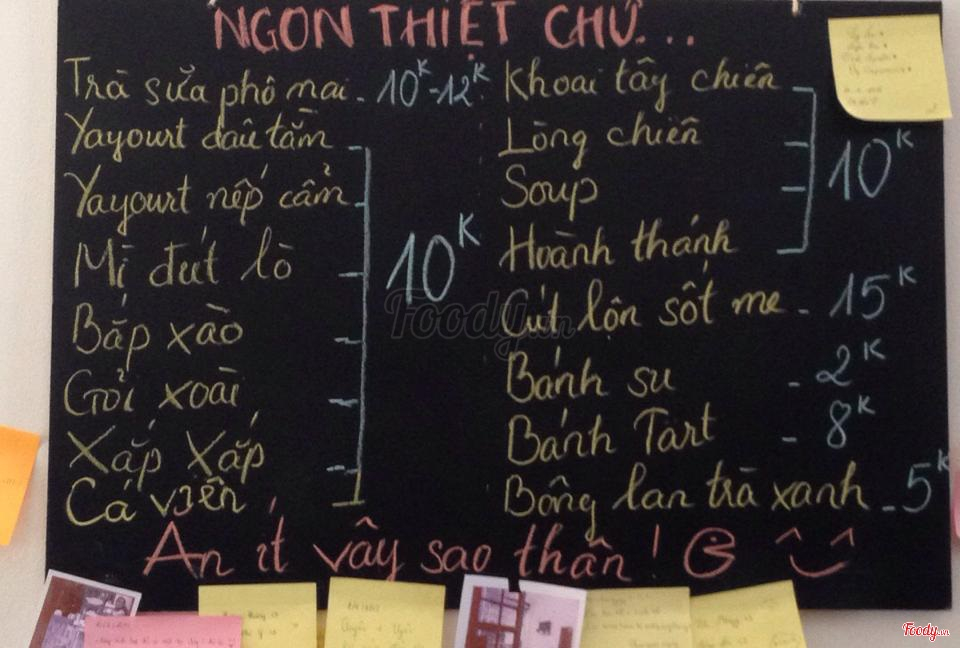 NGON THIỆT CHỨ...
Trà sữa phô mai - 10K-12K
Yayourt dâu tằm
Yayourt nếp cẩm
Mì đút lò
Bắp xào
Gỏi xoài
Xắp Xắp
Cá viên
10K
Khoai tây chiên
Lòng chiên
Soup
Hoành thánh
10K
Cút lộn sốt me - 15K
Bánh su - 2K
Bánh Tart - 8K
Bông lan trà xanh - 5K
Ăn ít vậy sao thần!
Foody.vn
Foody.vn